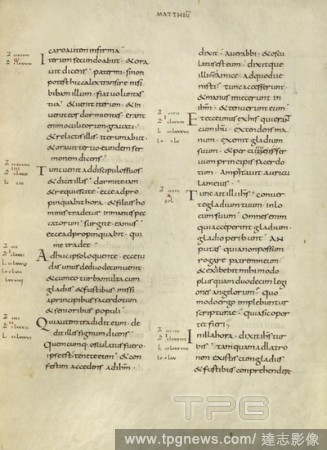 MATTHEU
caro autem infirma
Iterum secundo abiit · & ora
uit dicens · pater mi · si non
potest hic calix transire nisi
bibam illum · fiat uoluntas
tua · & uenit iterum · & in
uenit eos dormientes · erant
enim oculi eorum grauati
& relictis illis · iterum abiit
& orauit tertio eundem ser
monem dicens
Tunc uenit ad discipulos suos
& dicit illis · dormite iam
& requiescite · ecce adpro
pinquabit hora · & filius ho
minis tradetur in manus pec
catorum · surgite eamus ·
ecce adpropinquabit · qui
me tradet
Adhuc ipso loquente · ecce iu
das unus de duodecim uenit
& cum eo turba multa cum
gladiis & fustibus · missi
a principibus sacerdotum
& senioribus populi
Qui autem tradidit eum · de
dit illis signum dicens
Quemcumq; osculatus fuero
ipse est · tenete eum · & con
festim accedens ad ihm ·
dixit · aue rabbi · & oscu
latus est eum · dixitque
illi ihs · amice · ad quod ue
nisti · tunc accesserunt
& manus iniecerunt in
ihm · & tenuerunt eum
Et ecce unus ex his qui erant
cum ihu · extendens ma
num · exemit gladium
suum · & percutiens ser
uum principis sacerdo
tum · amputauit auricu
lam eius
Tunc ait illi ihs · conuer
te gladium tuum · in lo
cum suum · Omnes enim
qui acceperint gladium
gladio peribunt · An
putas quia non possum
rogare patrem meum
& exhibebit mihi modo
plus quam duodecim legi
ones angelorum · quo
modo ergo implebuntur
scripturae · quia sic opor
tet fieri
In illa hora · dixit ihs tur
bis · tamquam ad latro
nem existis cum gladiis
& fustibus comprehende
TPG
www.tpgnews.com / 達志影像